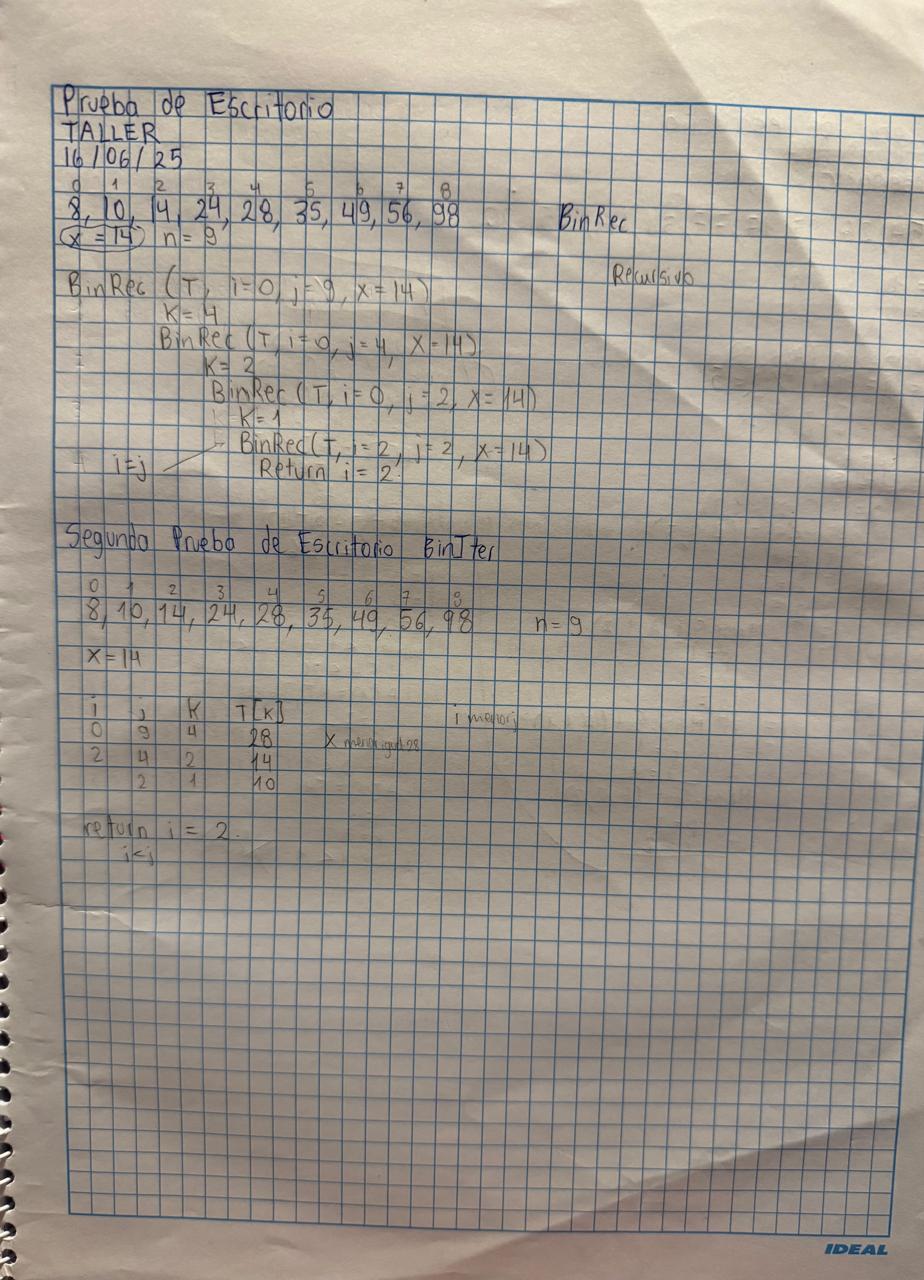 Prueba de Escritorio
TALLER
16/06/25
0 1 2 3 4 5 6 7 8
8, 10, 14, 24, 28, 35, 49, 56, 98 BinRec
x = 14 n = 9
Recursivo
BinRec (T, i=0, j=9, x=14)
K=4
BinRec (T, i=0, j=4, X=14)
K=2
BinRec (T, i=0, j=2, x=14)
K=1
BinRec(T, i=2, j=2, x=14)
i=j Return i=2.
Segundo Prueba de Escritorio BinIter
0 1 2 3 4 5 6 7 8
8, 10, 14, 24, 28, 35, 49, 56, 98 n=9
X=14
i j K T[K] i menor j
0 9 4 28 X menor igual 28
2 4 2 14
2 1 10
return i = 2.
i<j
IDEAL